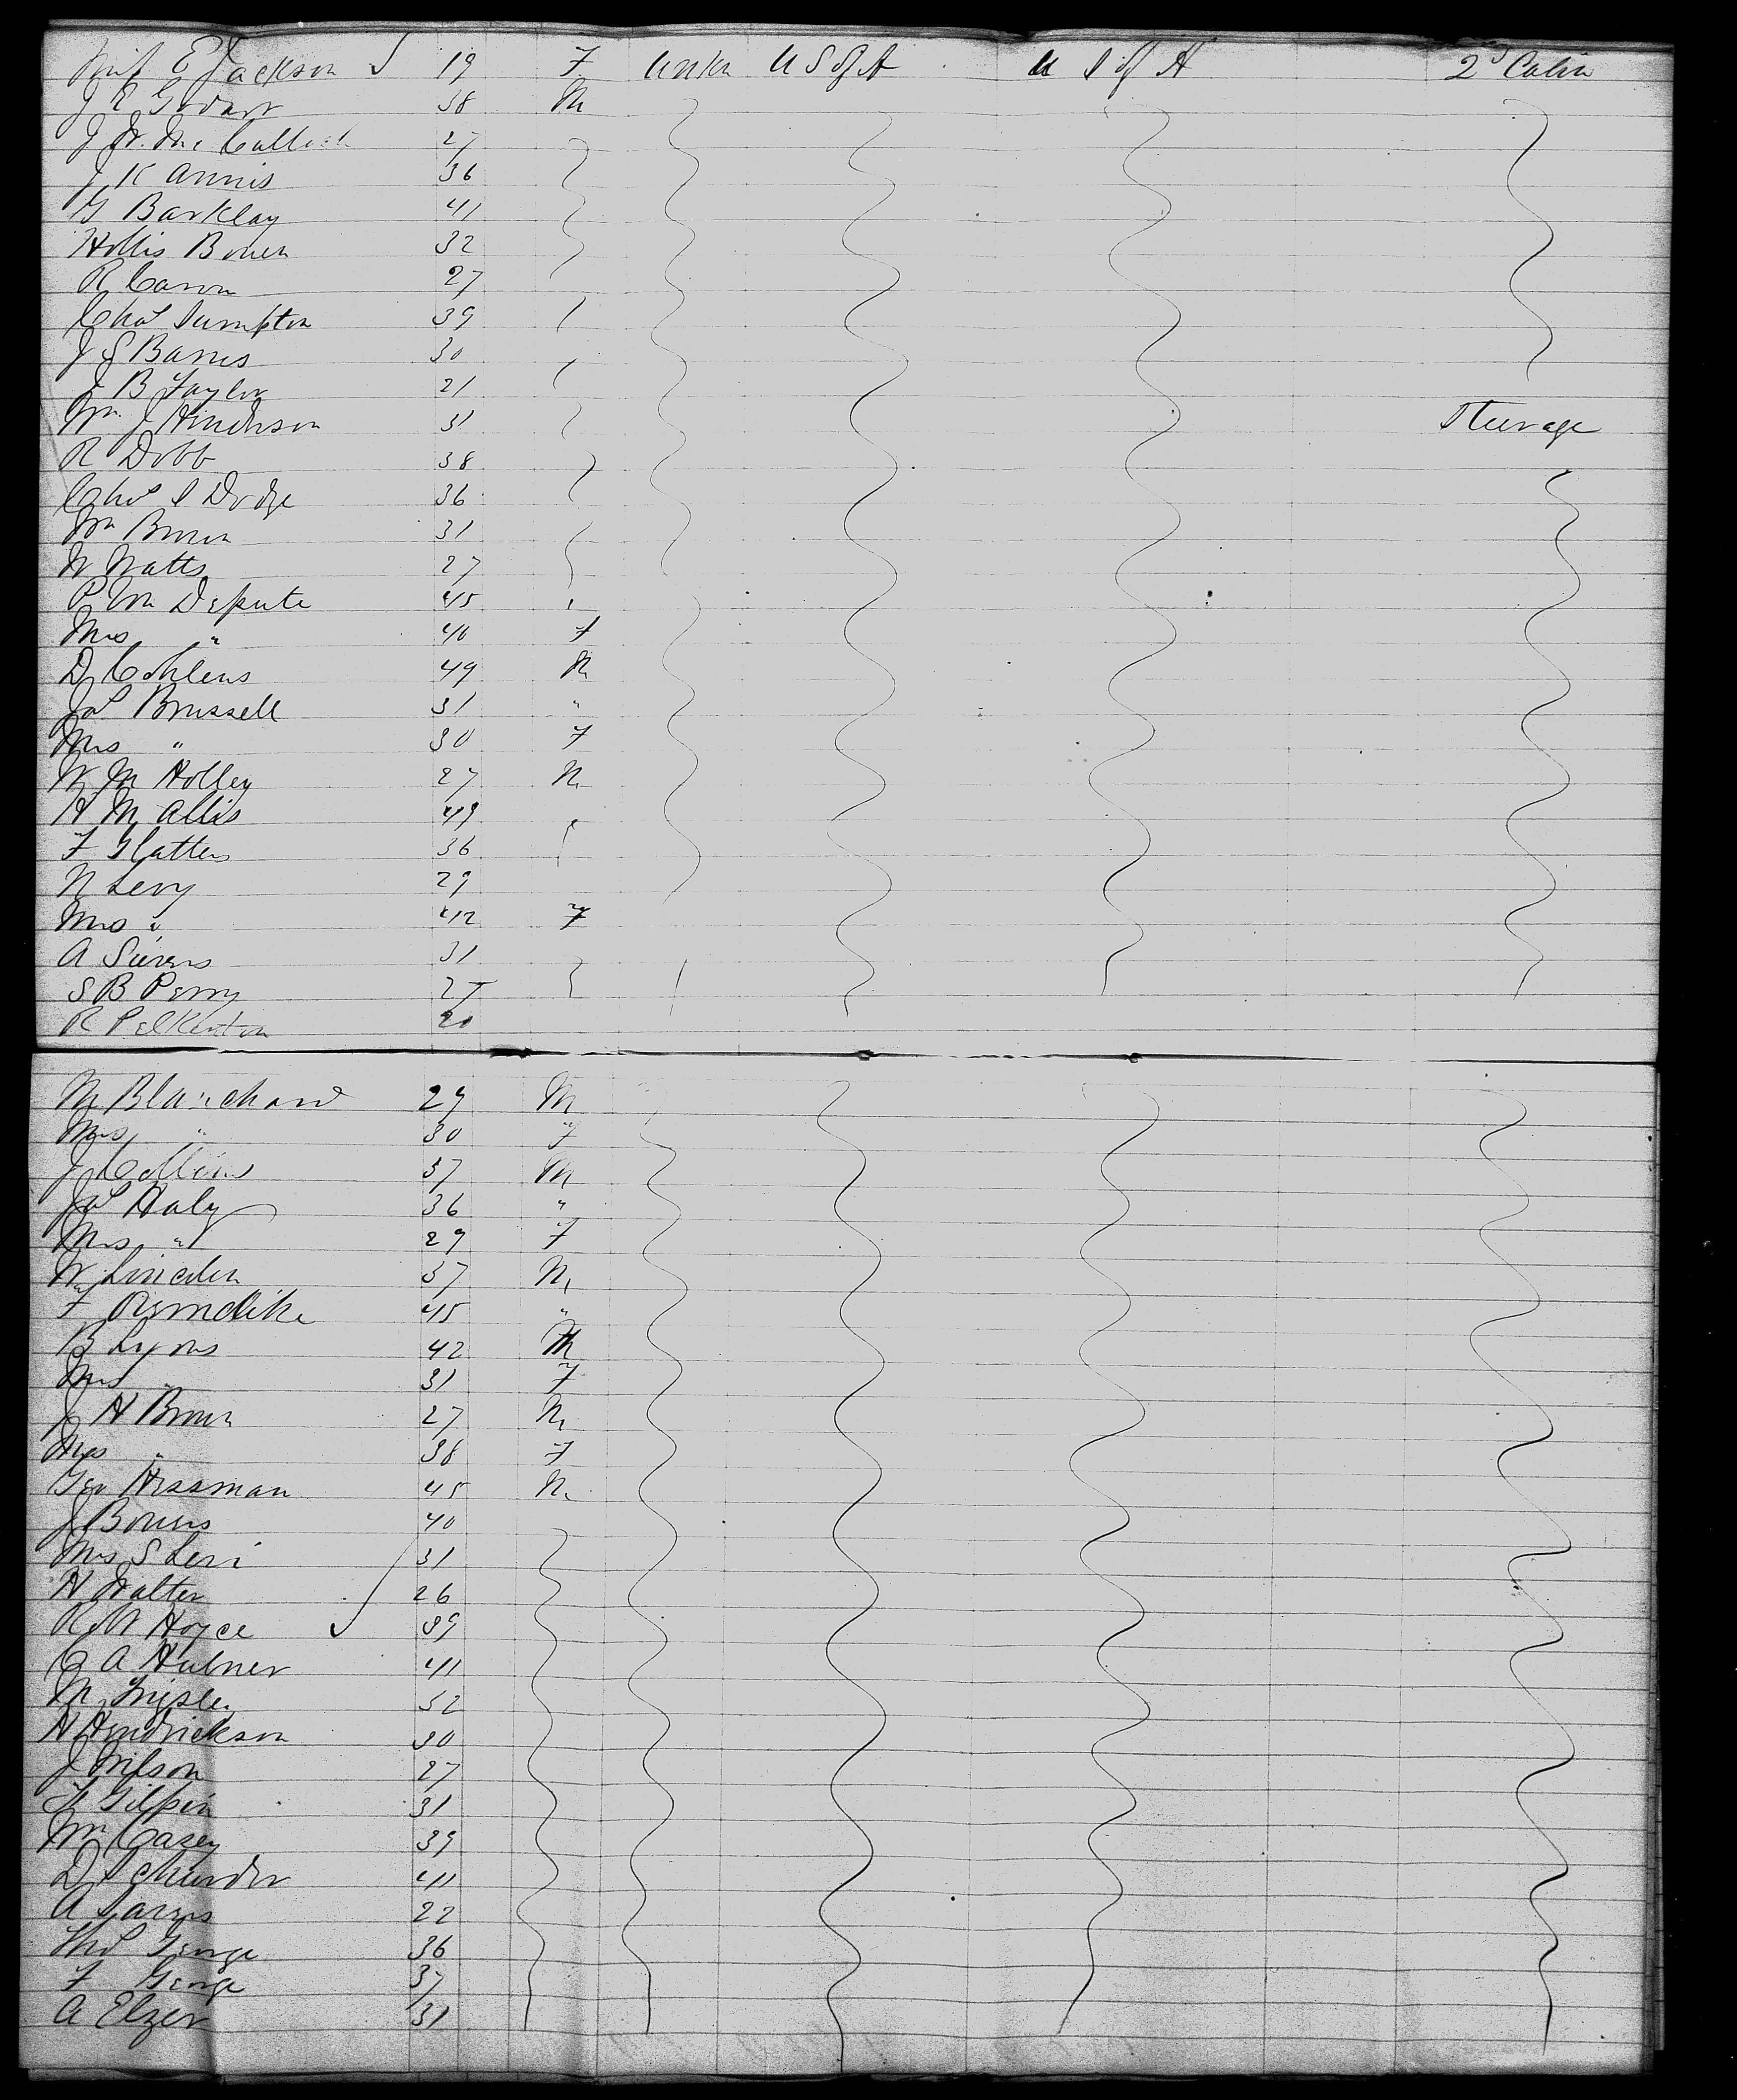 Miss E Jackson 19 F Unkn U S of A U S of A 2d Cabin
J R Godart 38 M
J W McCulloch 27
J K Annis 36
G Barklay 41
Hollis Bowen 32
R Carson 27
Chas Sumpton 39
J S Barnes 30
J B Taylor 21
Wm J Hinderson 31 Steerage
R Dobb 38
Chas S Dodge 36
Wm Brown 31
W Watts 27
P Wm Depute 45
Mrs " 40 F
D Cohlens 49 M
Jas Brussell 31 "
Mrs " 30 F
W M Holley 27 M
A M Allis 49
F Glatten 36
N Levy 29
Mrs " 42 F
A Sivers 31
S B Perry 27
R Pelkenton 20
M Blanchard 29 M
Mrs " 30 F
J Collins 37 M
Jas Haly 36 "
Mrs " 29 F
W Lincoln 37 M
F Remdike 45 "
B Lyons 42 M
Mrs " 31 F
J H Brown 27 M
Mrs " 38 F
Geo Hessman 45 M
J Bowers 40
Mrs S Levi 31
H Walter 26
R W Hoyce 39
C A Hubner 41
M 32
H Hendrickson 30
J Wilson 27
Gilpin 31
Wm Casey 39
D 41
A 22
Thos George 36
F George 37
A Elzer 31